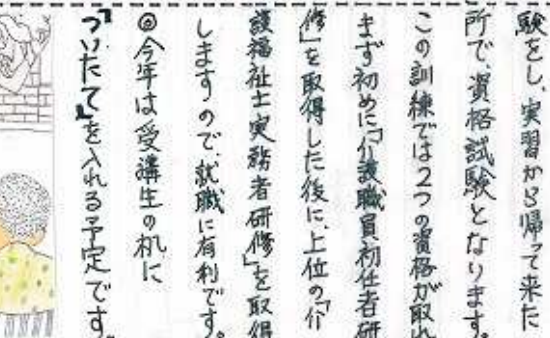 験をし、実習から帰って来た
所で、資格試験となります。
この訓練では2つの資格が取れ
まず初めに「介護職員初任者研
修」を取得した後に、上位の「介
護福祉士実務者研修」を取得
しますので、就職に有利です。
◎今年は受講生の机に
「ついたて」を入れる予定です。